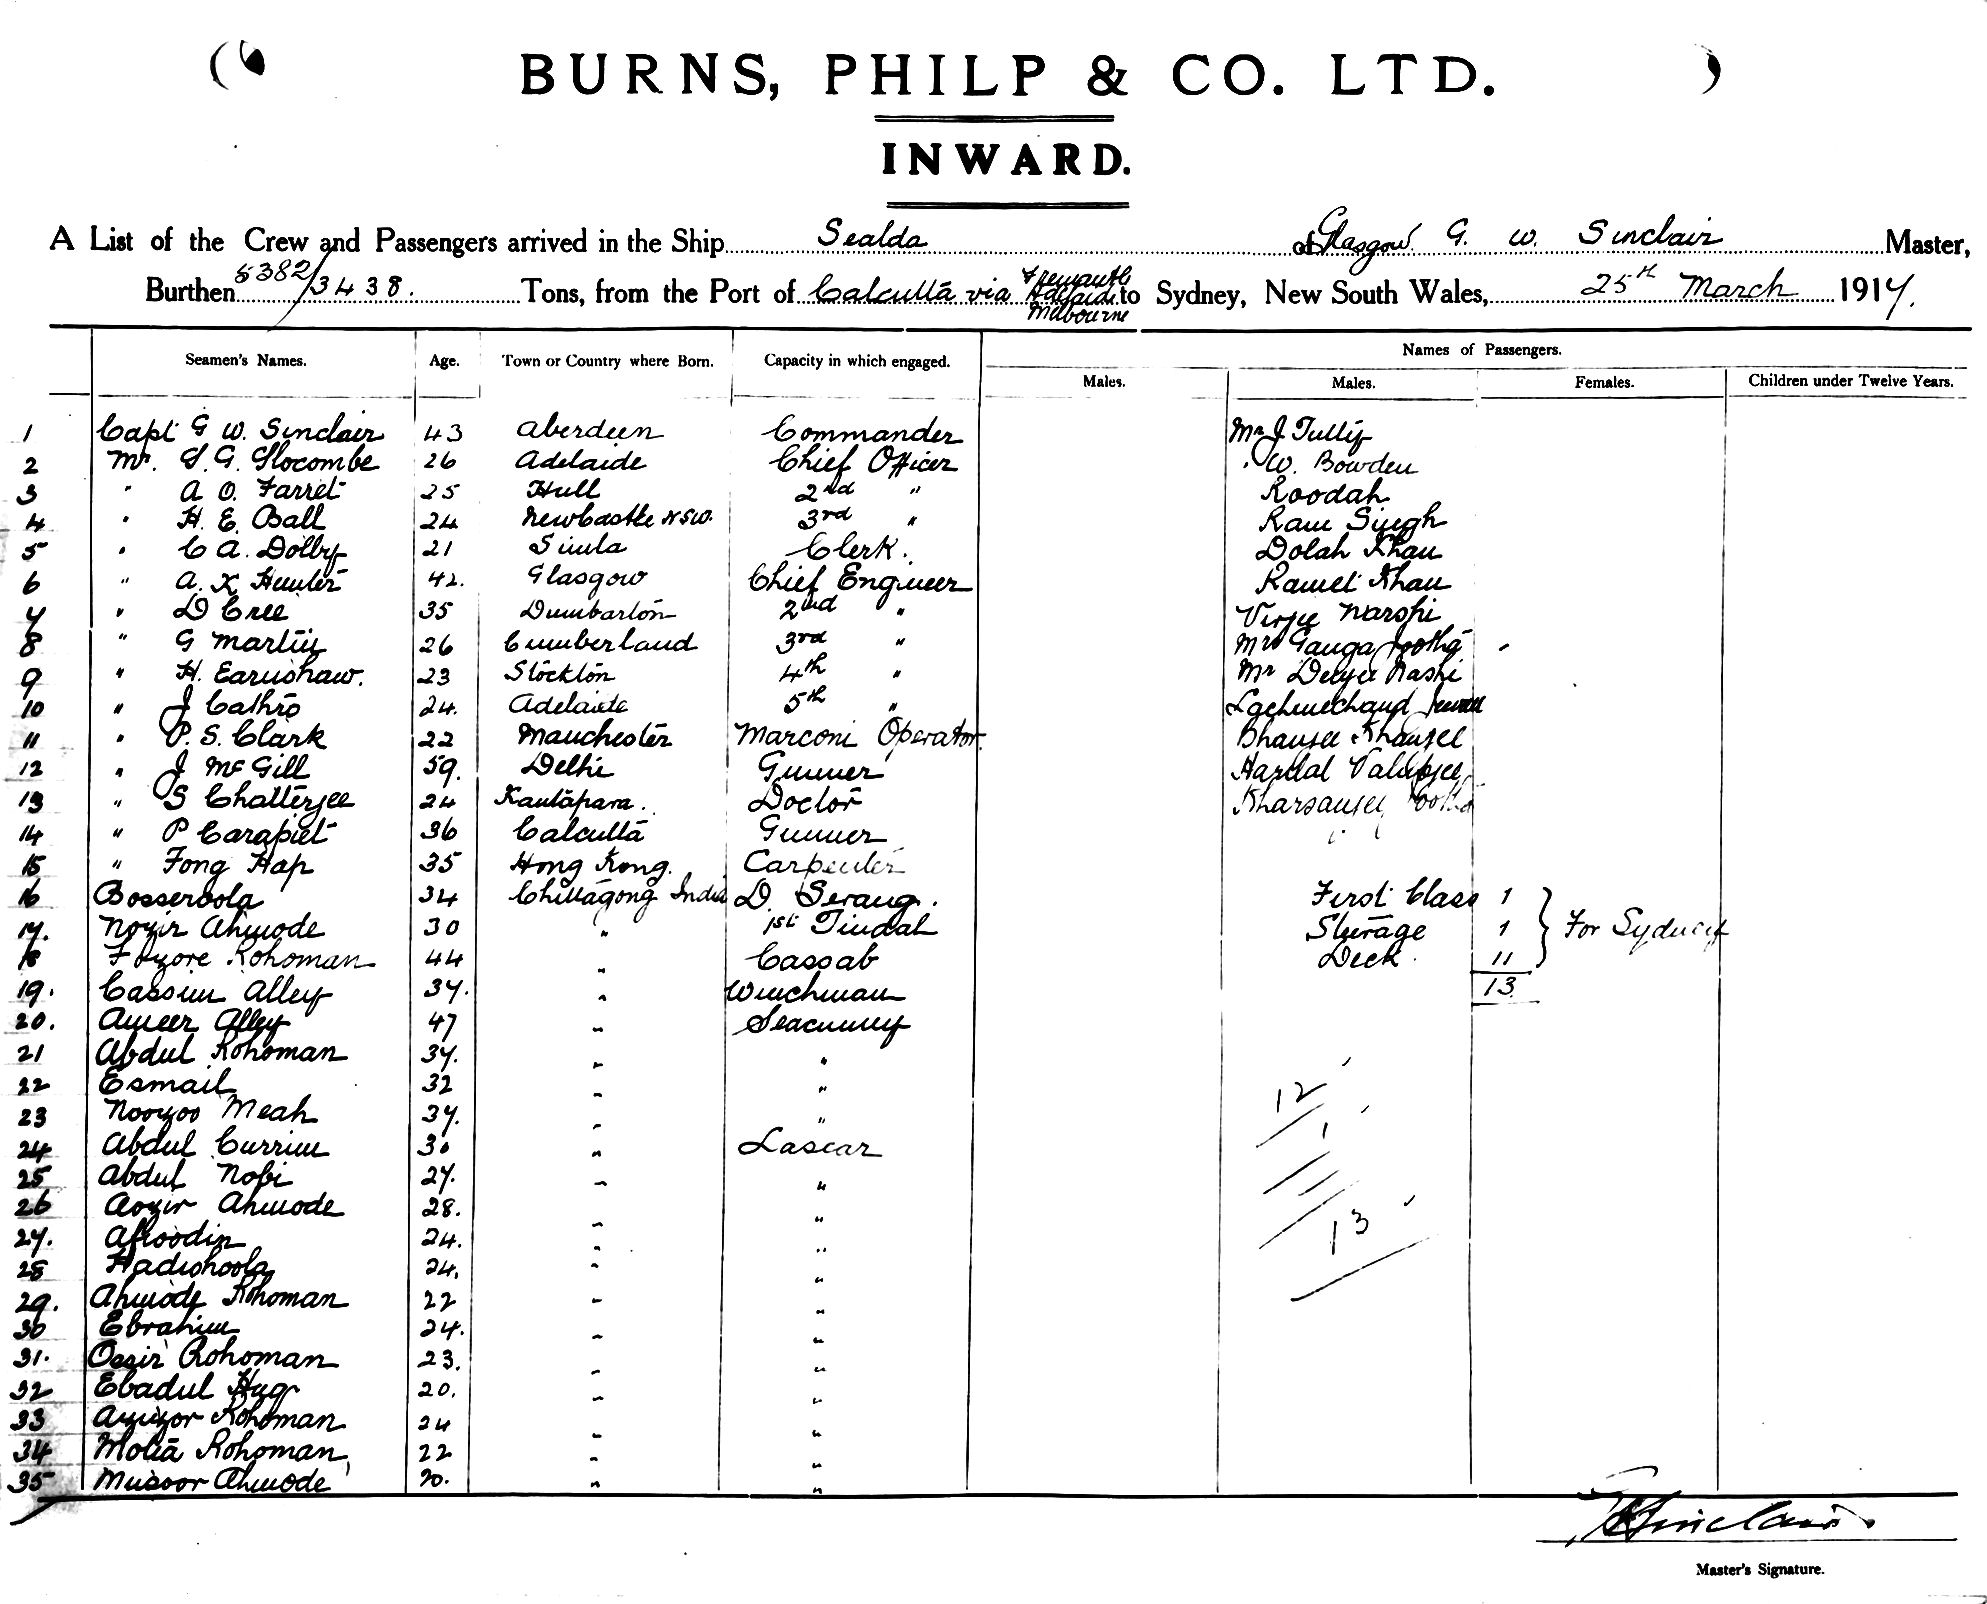 BURNS, PHILP & CO. LTD.
INWARD.
A List of the Crew and Passengers arrived in the Ship Sealda of Glasgow. G. W. Sinclair Master,
Burthen 5382/3438. Tons, from the Port of Calcutta via Fremantle Adelaide Melbourne to Sydney, New South Wales, 25th March 1914.
Seamen's Names. Age. Town or Country where Born. Capacity in which engaged. Names of Passengers.
Males. Males. Females. Children under Twelve Years.
1 Capt G W. Sinclair 43 Aberdeen Commander Mr J Tully
2 Mr. S. G. Slocombe 26 Adelaide Chief Officer " W. Bowden
3 " A O. Farret 25 Hull 2nd " Roodah
4 " H. E. Ball 24 Newcastle NSW. 3rd " Ram Singh
5 " C A. Dolby 21 Simla Clerk. Dolah Khan
6 " A. K Hunter 42. Glasgow Chief Engineer Khan
7 " D Cree 35 Dumbarton 2nd " Virjee Narshi
8 " G Martin 26 Cumberland 3rd " Ganga
9 " H. Earnshaw. 23 Stockton 4th " Mr
10 " J Cathro 24. Adelaide 5th "
11 " P. S. Clark 22 Manchester Marconi Operator.
12 " J McGill 59. Delhi Gunner
13 " S Chatterjee 24 Doctor
14 " P Carapiet 36 Calcutta Gunner
15 " Fong Hap 35 Hong Kong. Carpenter
16 Bosseroola 34 Chittagong India D. Serang. First Class 1
17. Nozir Ahmode 30 " 1st Tindal Steerage 1 } For Sydney
18 Fozore Rohoman 44 " Cassab Deck. 11
19. Cassim Alley 37. " Winchman 13
20. Ameer Alley 47 " Seacunny
21 Abdul Rohoman 37. " "
22 Esmail 32 " "
23 Nooyoo Meah 37. " " 12
24 Abdul Currim 30 " Lascar 1
25 Abdul Nobi 27. " "
26 Aozir Ahmode 28. " " 13
27. Afroodin 24. " "
28 Hadishoola 24. " "
29. Ahmode Rohoman 22 " "
30 Ebrahim 24. " "
31. Ossir Rohoman 23. " "
32 Ebadul Huq 20. " "
33 Azizor Rohoman 24 " "
34 Rohoman 22 " "
35 Musoor Ahmode 20. " "
Sinclair.
Master's Signature.